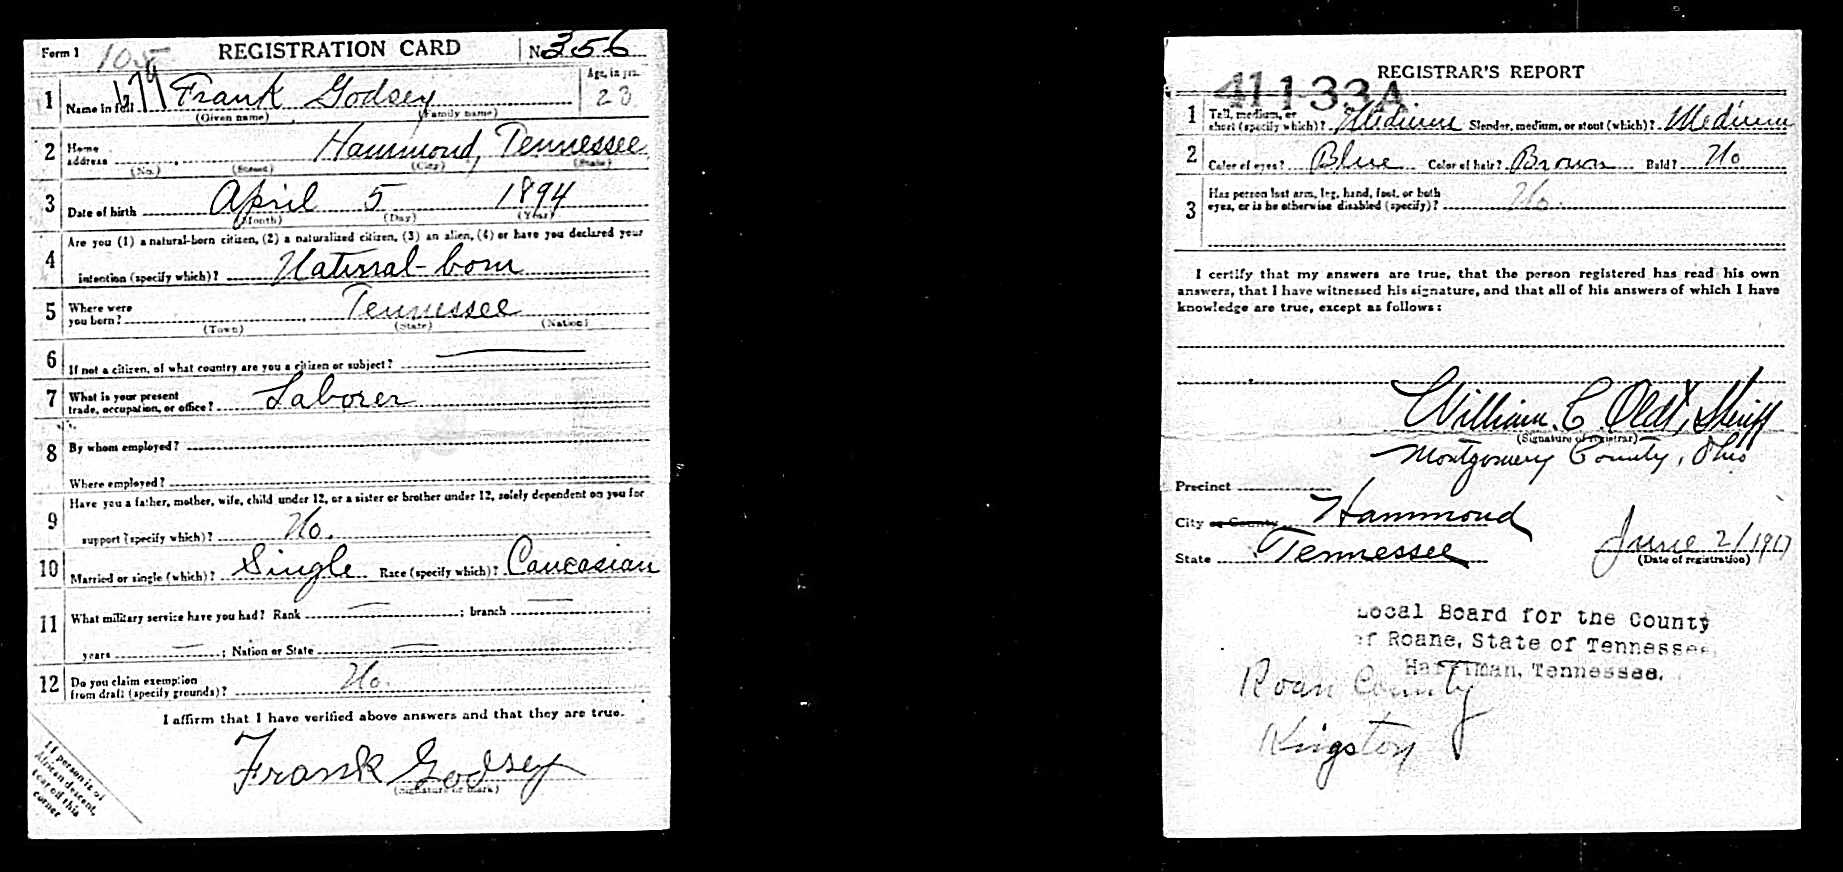 Form 1 105 REGISTRATION CARD No. 356
1 Name in full 179 Frank Godsey Age, in yrs. 23
(Given name) (Family name)
2 Home address Hammond, Tennessee
(No.) (Street) (City) (State)
3 Date of birth April 5 1894
(Month) (Day) (Year)
4 Are you (1) a natural-born citizen, (2) a naturalized citizen, (3) an alien, (4) or have you declared your
intention (specify which)? Natural-born
5 Where were you born? Tennessee
(Town) (State) (Nation)
6 If not a citizen, of what country are you a citizen or subject?
7 What is your present
trade, occupation, or office? Laborer
8 By whom employed?
Where employed?
9 Have you a father, mother, wife, child under 12, or a sister or brother under 12, solely dependent on you for
support (specify which)? No.
10 Married or single (which)? Single Race (specify which)? Caucasian
11 What military service have you had? Rank ; branch ;
years ; Nation or State
12 Do you claim exemption
from draft (specify grounds)? No.
I affirm that I have verified above answers and that they are true.
Frank Godsey
(Signature or mark)
If person is of
African descent,
tear off this
corner
REGISTRAR'S REPORT
41-1-33 A
1 Tall, medium, or
short (specify which)? Medium Slender, medium, or stout (which)? Medium
2 Color of eyes? Blue Color of hair? Brown Bald? No
3 Has person lost arm, leg, hand, foot, or both
eyes, or is he otherwise disabled (specify)? No.
I certify that my answers are true, that the person registered has read his own
answers, that I have witnessed his signature, and that all of his answers of which I have
knowledge are true, except as follows:
William C. Oldt, Sheriff
(Signature of registrar)
Montgomery County, Ohio
Precinct
City or County Hammond
State Tennessee June 21 1917
(Date of registration)
Local Board for the County
of Roane, State of Tennessee,
Harriman, Tennessee.
Roan County
Kingston